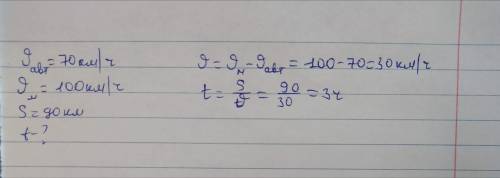 ϑавт = 70 км/ч
ϑм = 100 км/ч
S = 90 км
t - ?
ϑ = ϑм - ϑавт = 100 - 70 = 30 км/ч
t = S/ϑ = 90/30 = 3ч